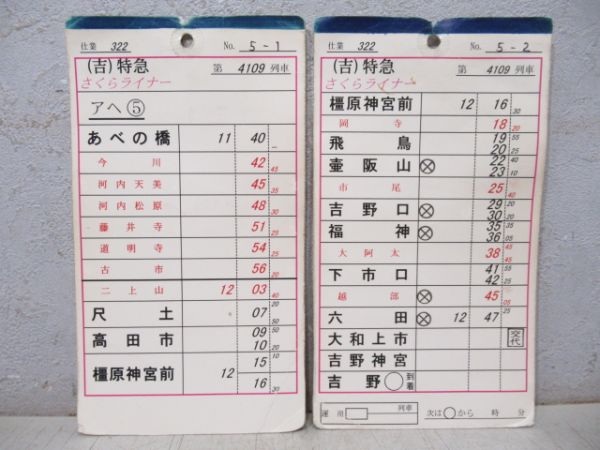 仕業 322 No. 5-1
(吉)特急 第 4109 列車
さくらライナー
アヘ⑤
あべの橋 11 40 —
今川 42 45
河内天美 45 35
河内松原 48 30
藤井寺 51 25
道明寺 54 25
古市 56 20
二上山 12 03 40
尺土 07 50
高田市 09 50
10 20
橿原神宮前 12 15 10
16 30
仕業 322 No. 5-2
(吉)特急 第 4109 列車
さくらライナー
橿原神宮前 12 16 30
岡寺 18 20
飛鳥 19 55
20 25
壷阪山 ⊗ 22 40
23 10
市尾 25 40
吉野口 ⊗ 29 20
30 20
福神 ⊗ 35 35
36 05
大阿太 38 45
下市口 41 55
42 25
越部 ⊗ 45 05
六田 ⊗ 12 47 25
大和上市 交代
吉野神宮
吉野 ◯ 到着
運用 列車 次は◯から 時 分